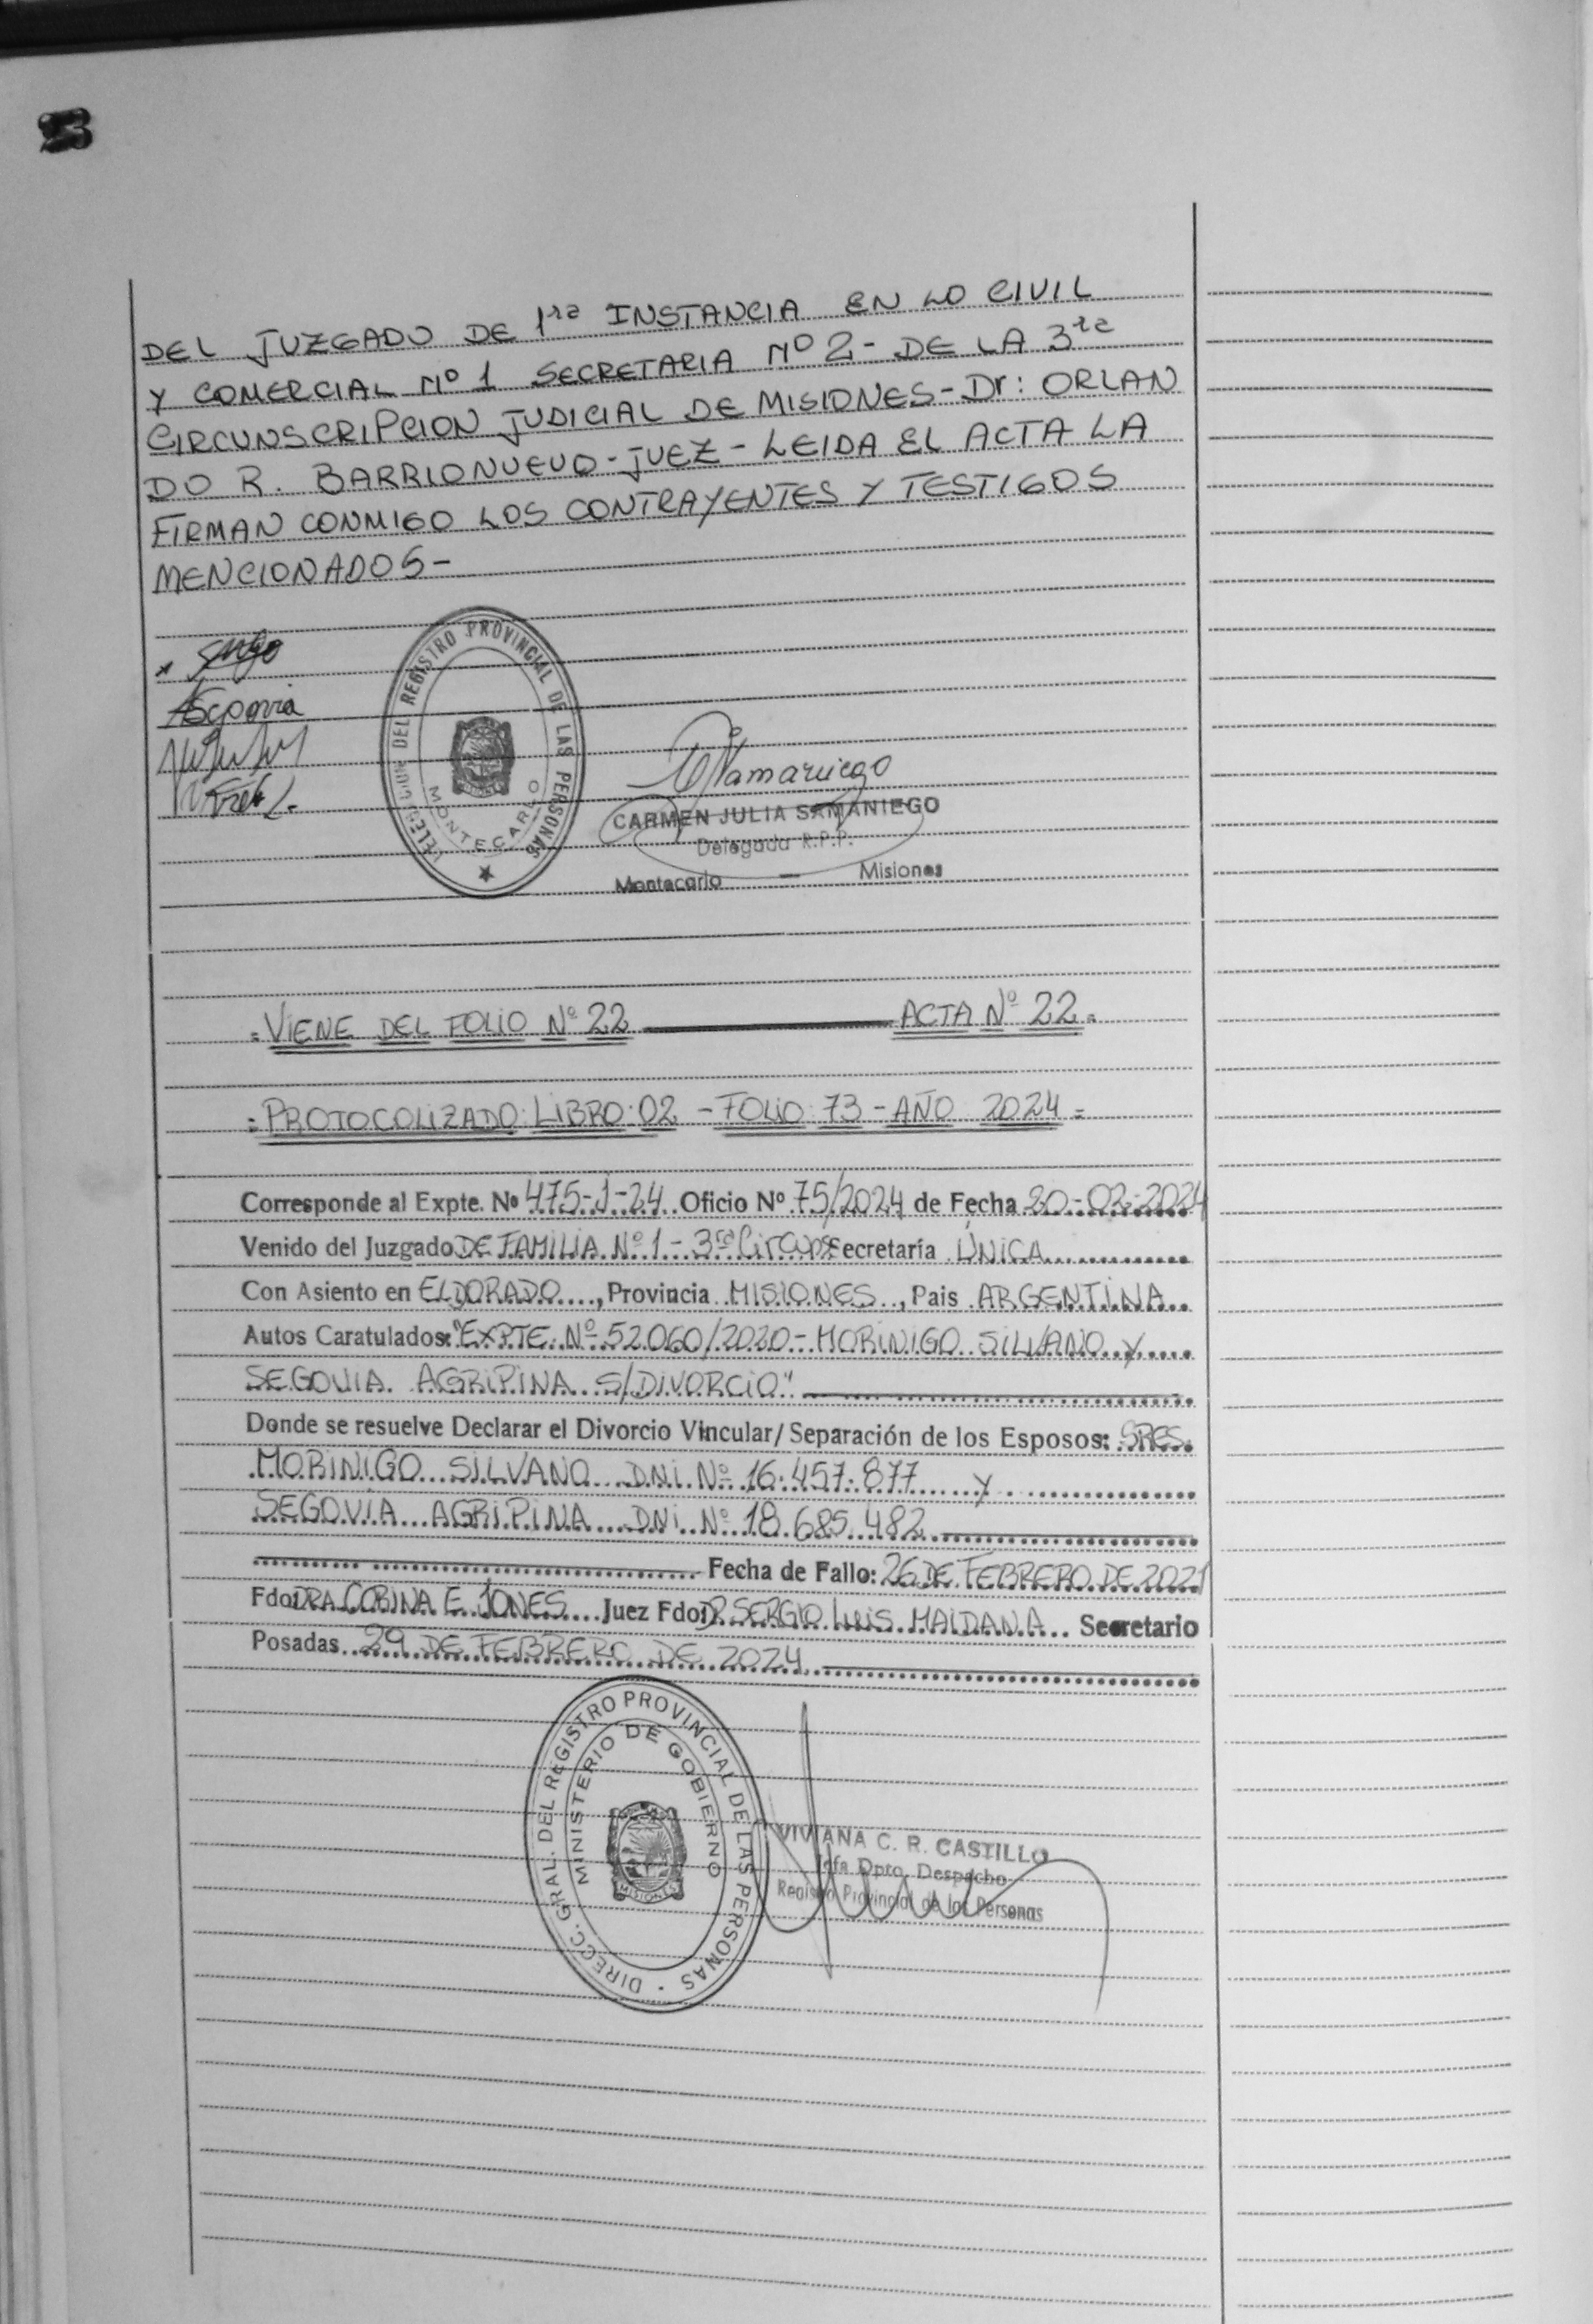 23
DEL JUZGADO DE 1ra INSTANCIA EN LO CIVIL
Y COMERCIAL Nº 1 SECRETARIA Nº 2- DE LA 3ra
CIRCUNSCRIPCION JUDICIAL DE MISIONES-Dr: ORLAN
DO R. BARRIONUEVO-JUEZ- LEIDA EL ACTA LA
FIRMAN CONMIGO LOS CONTRAYENTES Y TESTIGOS
MENCIONADOS-
ASegovia
DEL REGISTRO PROVINCIAL DE LAS PERSONAS
MONTECARLO
CARMEN JULIA SAMANIEGO
Delegada R.P.P.
Montecarlo — Misiones
=VIENE DEL FOLIO Nº 22 ——— ACTA Nº 22=
=PROTOCOLIZADO: LIBRO: 02 - FOLIO: 73 - AÑO 2024=
Corresponde al Expte. Nº 475-J-24 Oficio Nº 75/2024 de Fecha 20-02-2024
Venido del Juzgado DE FAMILIA Nº 1 - 3ra Circuns Secretaría ÚNICA
Con Asiento en ELDORADO, Provincia MISIONES, Pais ARGENTINA
Autos Caratulados: "EXPTE. Nº 52.060/2020- MORINIGO SILVANO Y
SEGOVIA AGRIPINA S/DIVORCIO"
Donde se resuelve Declarar el Divorcio Vincular/ Separación de los Esposos: SRES.
MORINIGO SILVANO DNI. Nº 16.457.877 y
SEGOVIA AGRIPINA DNI Nº 18.685.482
Fecha de Fallo: 26 DE FEBRERO DE 2021
Fdo: DRA CORINA E. JONES Juez Fdo: DR. SERGIO LUIS MALDANA Secretario
Posadas 29 DE FEBRERO DE 2024
DIRECC. GRAL. DEL REGISTRO PROVINCIAL DE LAS PERSONAS
MINISTERIO DE GOBIERNO
MISIONES
VIVIANA C. R. CASTILLO
Jefa Dpto. Despacho
Registro Provincial de las Personas